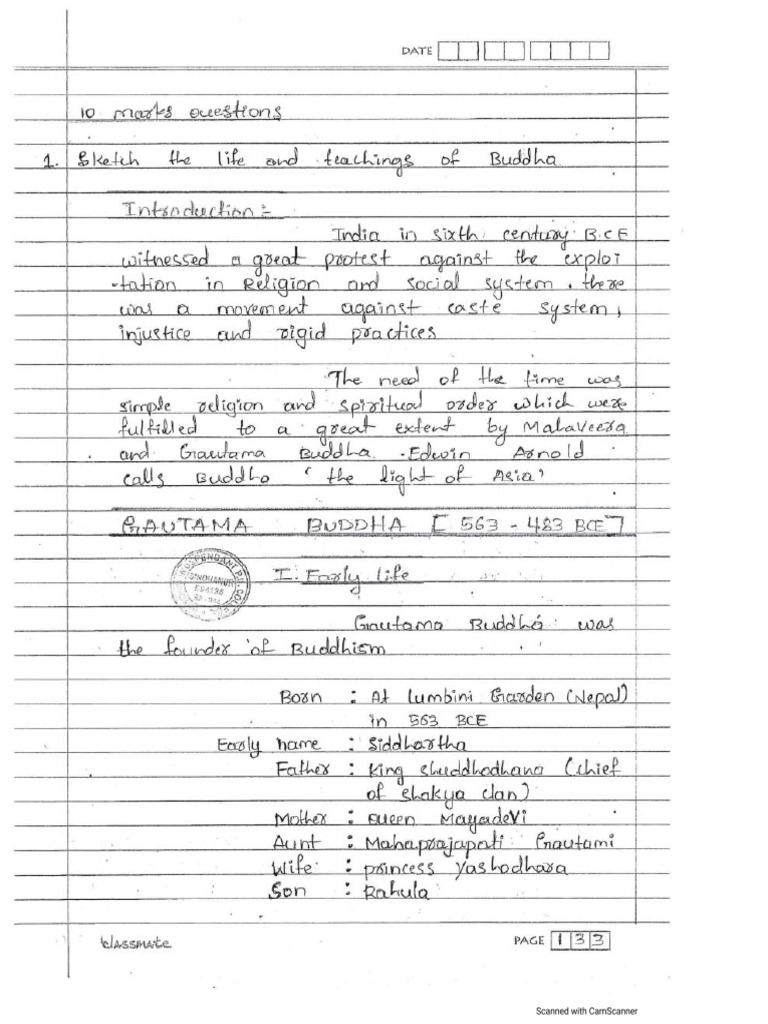 DATE
10 marks questions
1. Sketch the life and teachings of Buddha
Introduction :-
India in sixth century B.C.E
witnessed a great protest against the exploi
-tation in Religion and social system. there
was a movement against caste system,
injustice and rigid practices
The need of the time was
simple religion and spiritual order which were
fulfilled to a great extent by Mahaveera
and Gautama Buddha. Edwin Arnold
calls Buddha 'the light of Asia'
GAUTAMA BUDDHA [563 - 483 BCE]
I. Early life
Gautama Buddha was
the founder of Buddhism
Born : At Lumbini Garden (Nepal)
in 563 BCE
Early name : Siddhartha
Father : King Shuddhodhana (chief
of shakya clan)
Mother : Queen Mayadevi
Aunt : Mahaprajapati Gautami
Wife : princess Yashodhara
Son : Rahula
classmate
PAGE 133
Scanned with CamScanner